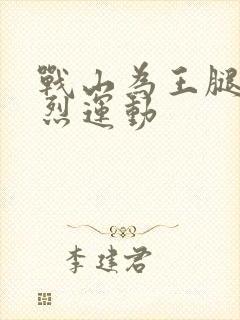 戰山為王腿
烈運動
李建君